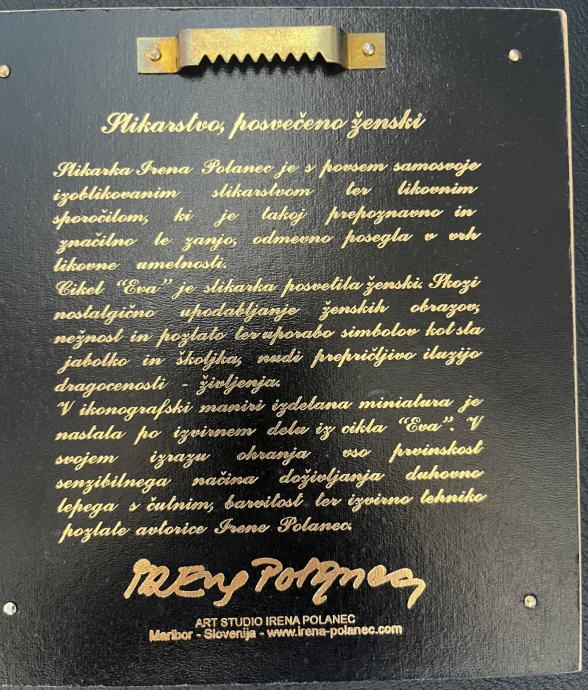 Slikarstvo, posvečeno ženski
Slikarka Irena Polanec je s povsem samosvoje
izoblikovanim slikarstvom ter likovnim
sporočilom, ki je takoj prepoznavno in
značilno le zanjo, odmevno posegla v vrh
likovne umetnosti.
Cikel "Eva" je slikarka posvetila ženski. Skozi
nostalgično upodabljanje ženskih obrazov,
nežnost in pozlato ter uporabo simbolov kot sta
jabolko in školjka, nudi prepričljivo iluzijo
dragocenosti - življenja.
V ikonografski maniri izdelana miniatura je
nastala po izvirnem delu iz cikla "Eva". V
svojem izrazu ohranja vso prvinskost
senzibilnega načina doživljanja duhovno
lepega s čutnim, barvitost ter izvirno tehniko
pozlate avtorice Irene Polanec.
Irena Polanec
ART STUDIO IRENA POLANEC
Maribor - Slovenija - www.irena-polanec.com